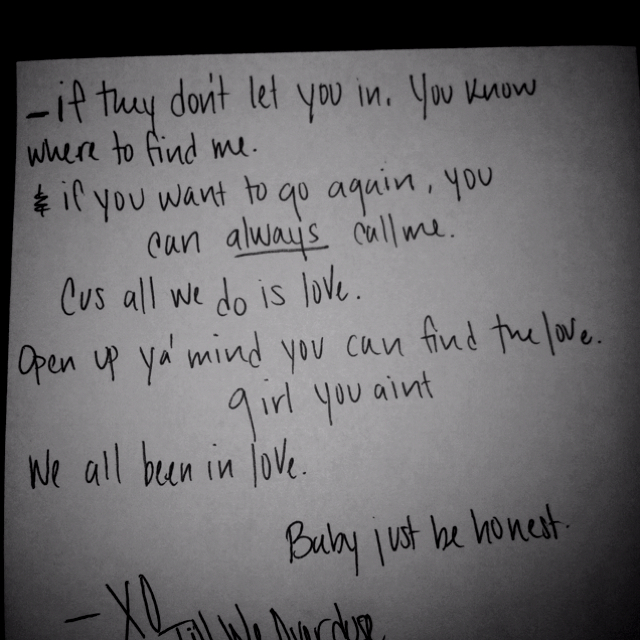 - if they don't let you in. You know
where to find me.
& if you want to go again, you
can always call me.
Cus all we do is love.
Open up ya' mind you can find the love.
girl you aint
We all been in love.
Baby just be honest.
- XO
Till We Overdose.